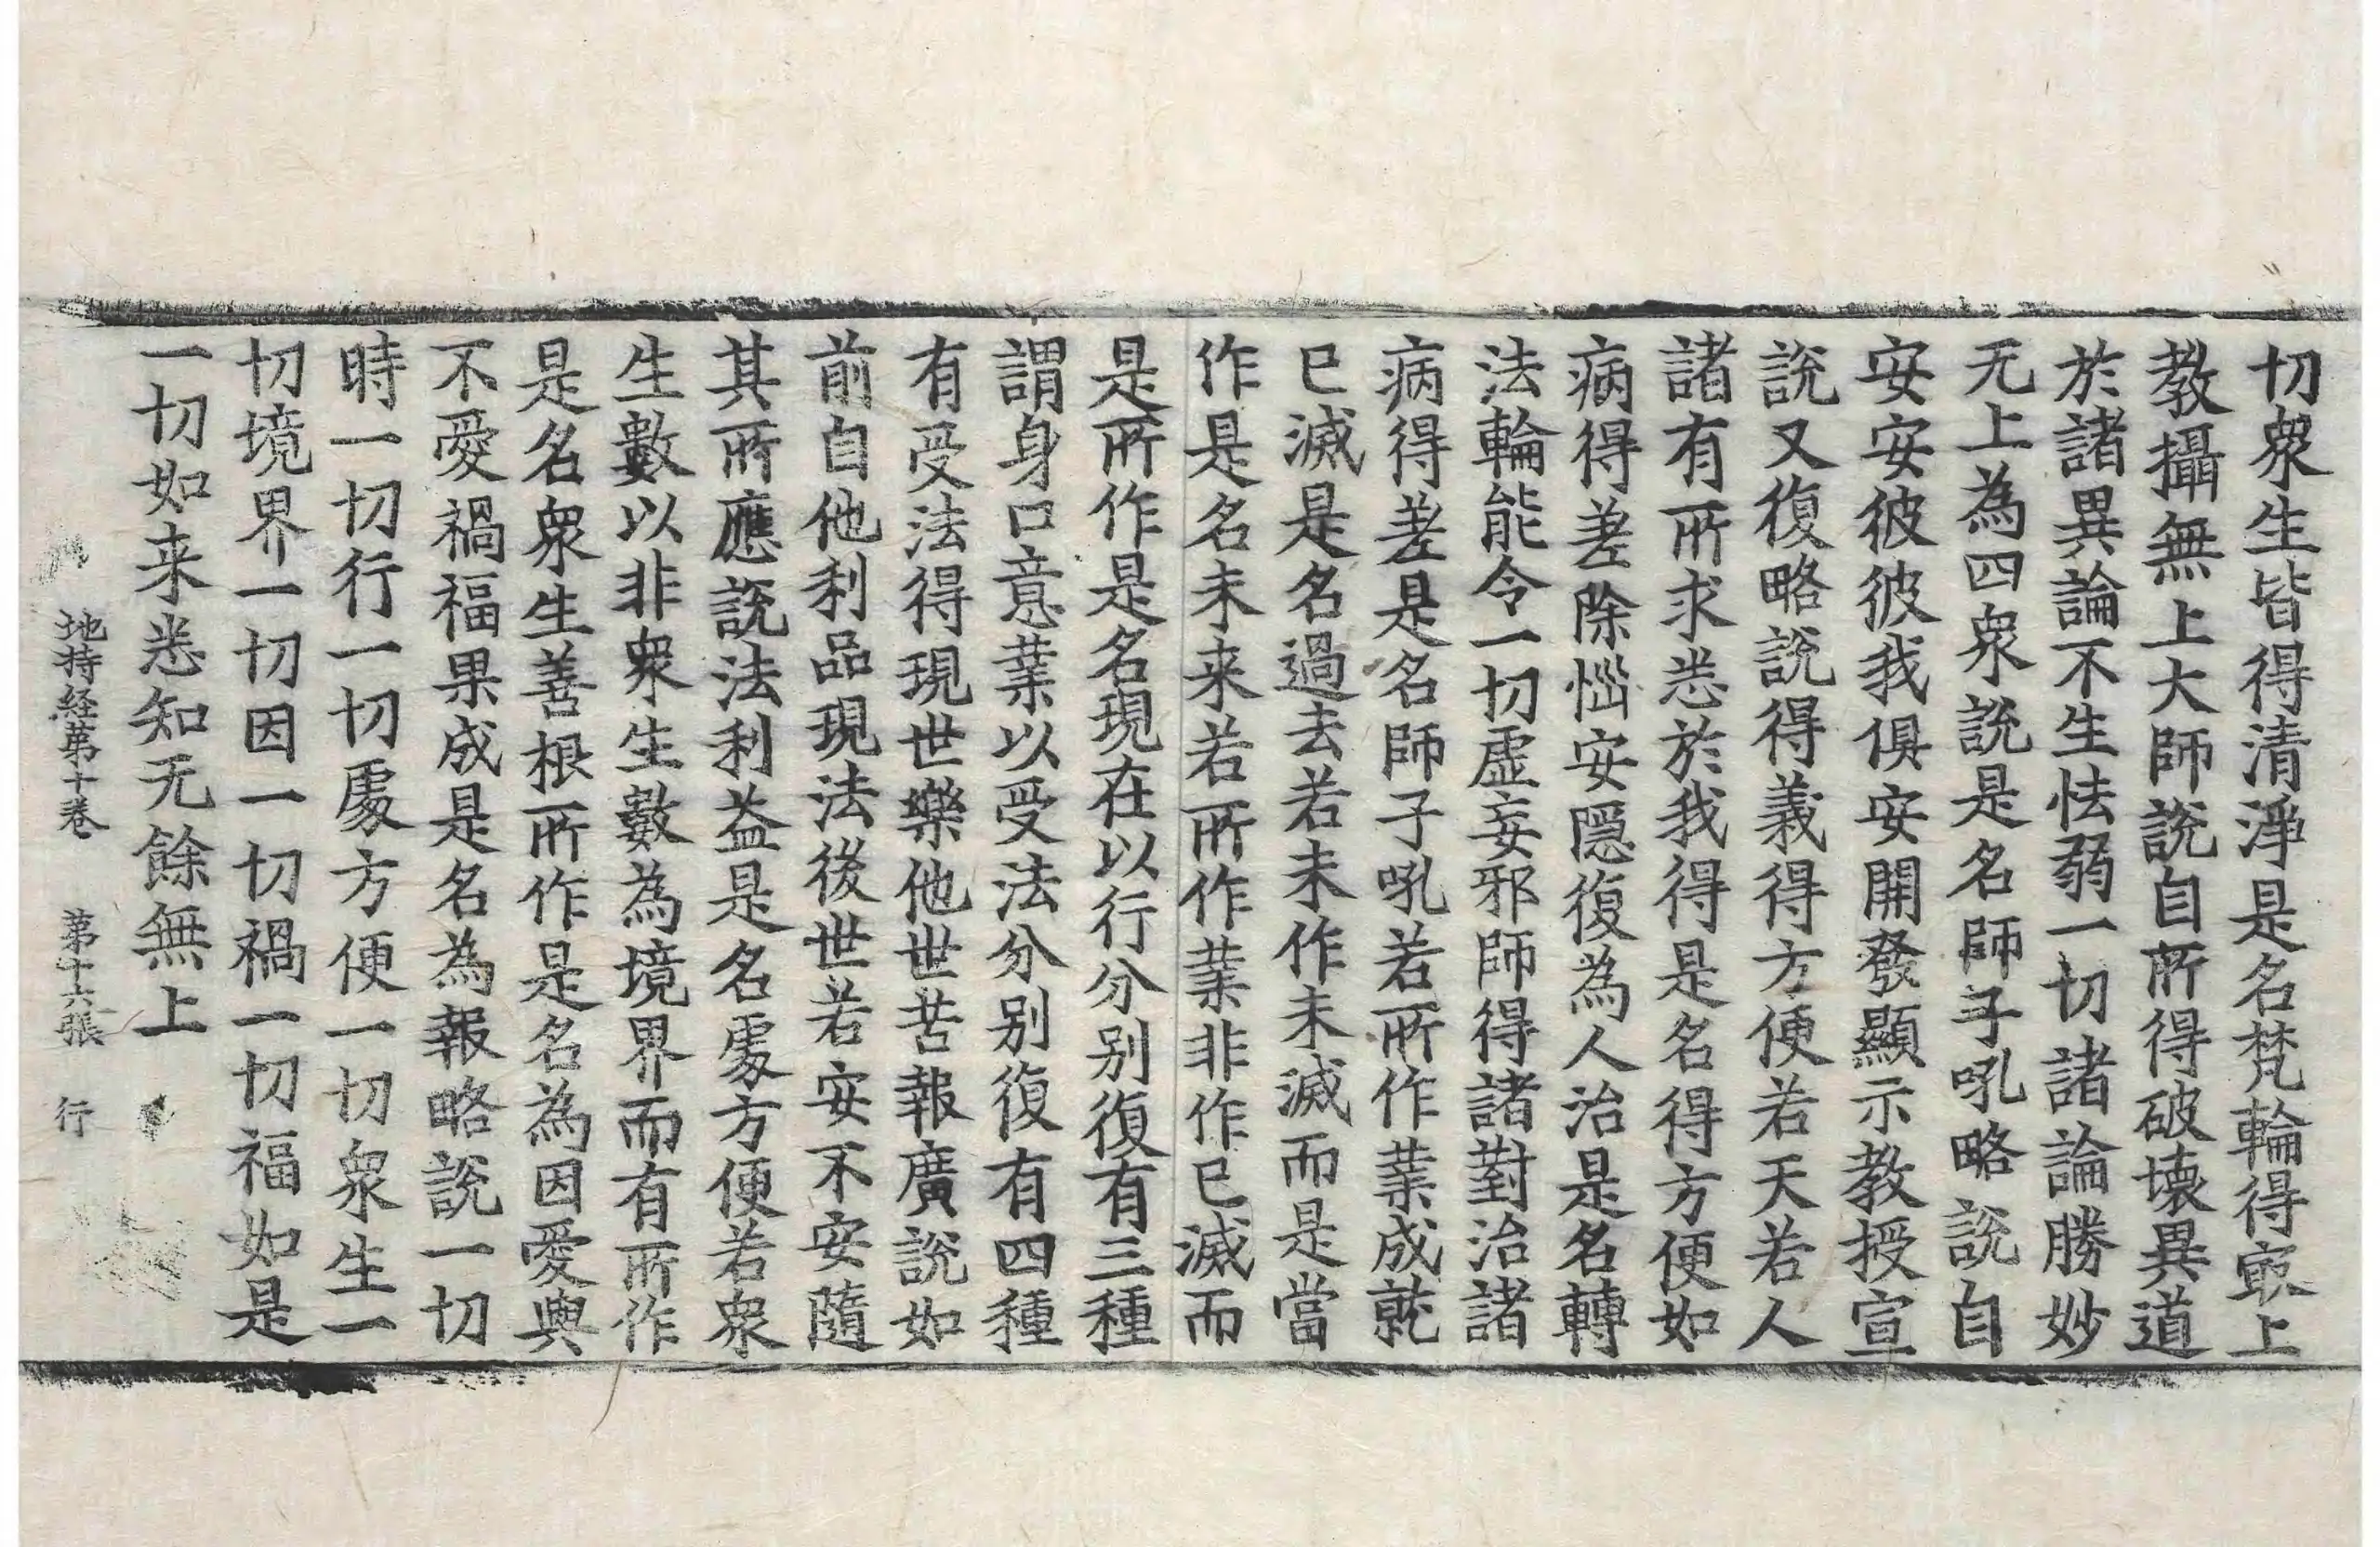 切衆生皆得清淨是名梵輪得㝡上
教攝無上大師說自所得破壞異道
於諸異論不生怯弱一切諸論勝妙
无上為四衆說是名師子吼略說自
安安彼彼我俱安開發顯示教授宣
說又復略說得義得方便若天若人
諸有所求悉於我得是名得方便如
病得差除惱安隱復為人治是名轉
法輪能令一切虛妄邪師得諸對治諸
病得差是名師子吼若所作業成就
已滅是名過去若未作未滅而是當
作是名未来若所作業非作已滅而
是所作是名現在以行分別復有三種
謂身口意業以受法分別復有四種
有受法得現世樂他世苦報廣說如
前自他利品現法後世若安不安隨
其所應說法利益是名處方便若衆
生數以非衆生數為境界而有所作
是名衆生善根所作是名為因愛與
不愛禍福果成是名為報略說一切
時一切行一切處方便一切衆生一
切境界一切因一切禍一切福如是
一切如来悉知无餘無上
地持経第十卷　第十六張　行